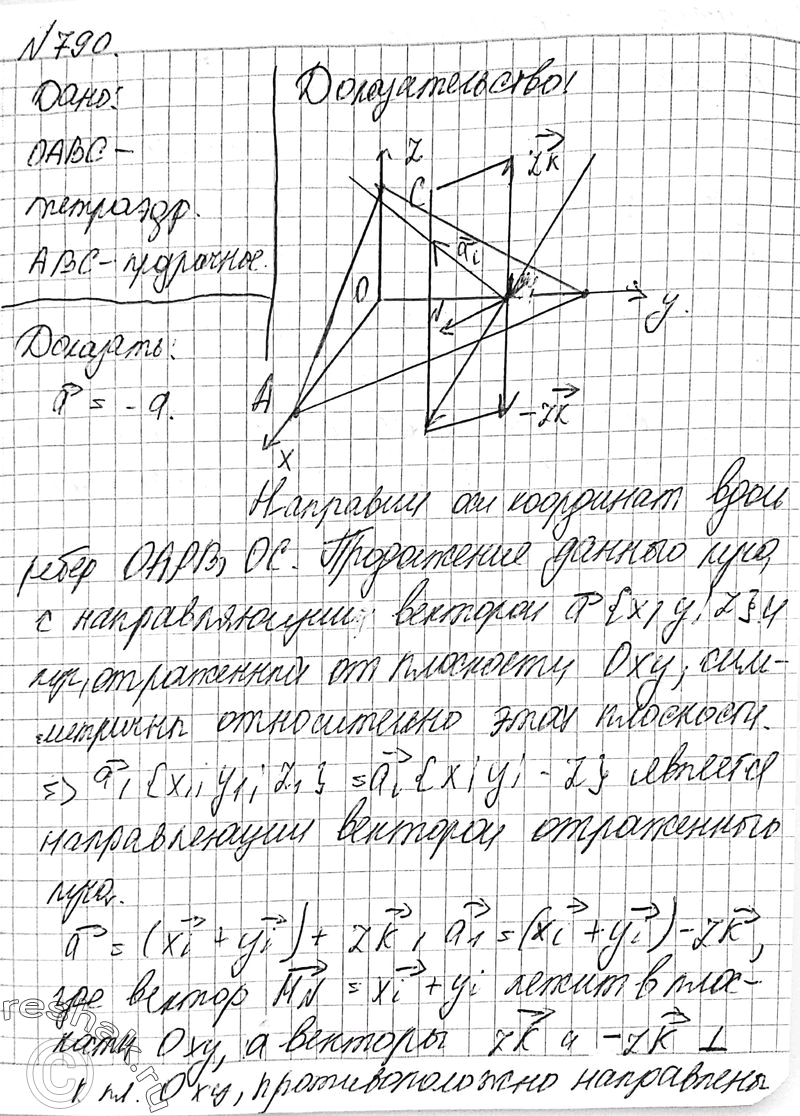 №790.
Дано:
OABC –
тетраэдр.
ABC – прозрачное.
Доказать:
a⃗ = -a.
Доказательство!
z
C
zk⃗
a⃗₁
O
M
N
y.
A
-zk⃗
x
Направим оси координат вдоль
ребер OA, OB, OC. Продолжение данного луча,
с направляющим вектором a⃗ {x; y; z} и
луч, отраженный от плоскости Oxy, сим-
метричны относительно этой плоскости.
=> a⃗₁ {x₁; y₁; z₁} = a⃗₁ {x; y; -z} является
направляющим вектором отраженного
луча.
a⃗ = (xi⃗ + yi⃗) + zk⃗, a⃗₁ = (xi⃗ + yi⃗) - zk⃗,
где вектор MN⃗ = xi⃗ + yi лежит в плос-
кости Oxy, а векторы zk⃗ и -zk⃗ ⊥
к пл. Oxy, противоположно направлены
reshak.ru